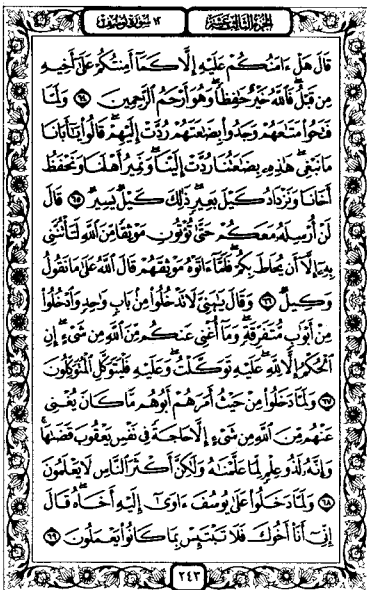 الجزء الثالث عشر ١٢ سورة يوسف
قَالَ هَلْ ءَامَنُكُمْ عَلَيْهِ إِلَّا كَمَآ أَمِنتُكُمْ عَلَىٰٓ أَخِيهِ
مِن قَبْلُ ۖ فَٱللَّهُ خَيْرٌ حَٰفِظًا ۖ وَهُوَ أَرْحَمُ ٱلرَّٰحِمِينَ ﴿٦٤﴾ وَلَمَّا
فَتَحُوا۟ مَتَٰعَهُمْ وَجَدُوا۟ بِضَٰعَتَهُمْ رُدَّتْ إِلَيْهِمْ ۖ قَالُوا۟ يَٰٓأَبَانَا
مَا نَبْغِى ۖ هَٰذِهِۦ بِضَٰعَتُنَا رُدَّتْ إِلَيْنَا ۖ وَنَمِيرُ أَهْلَنَا وَنَحْفَظُ
أَخَانَا وَنَزْدَادُ كَيْلَ بَعِيرٍ ۖ ذَٰلِكَ كَيْلٌ يَسِيرٌ ﴿٦٥﴾ قَالَ
لَنْ أُرْسِلَهُۥ مَعَكُمْ حَتَّىٰ تُؤْتُونِ مَوْثِقًا مِّنَ ٱللَّهِ لَتَأْتُنَّنِى
بِهِۦٓ إِلَّآ أَن يُحَاطَ بِكُمْ ۖ فَلَمَّآ ءَاتَوْهُ مَوْثِقَهُمْ قَالَ ٱللَّهُ عَلَىٰ مَا نَقُولُ
وَكِيلٌ ﴿٦٦﴾ وَقَالَ يَٰبَنِىَّ لَا تَدْخُلُوا۟ مِنۢ بَابٍ وَٰحِدٍ وَٱدْخُلُوا۟
مِنْ أَبْوَٰبٍ مُّتَفَرِّقَةٍ ۖ وَمَآ أُغْنِى عَنكُم مِّنَ ٱللَّهِ مِن شَىْءٍ ۖ إِنِ
ٱلْحُكْمُ إِلَّا لِلَّهِ ۖ عَلَيْهِ تَوَكَّلْتُ ۖ وَعَلَيْهِ فَلْيَتَوَكَّلِ ٱلْمُتَوَكِّلُونَ
﴿٦٧﴾ وَلَمَّا دَخَلُوا۟ مِنْ حَيْثُ أَمَرَهُمْ أَبُوهُم مَّا كَانَ يُغْنِى
عَنْهُم مِّنَ ٱللَّهِ مِن شَىْءٍ إِلَّا حَاجَةً فِى نَفْسِ يَعْقُوبَ قَضَىٰهَا ۚ
وَإِنَّهُۥ لَذُو عِلْمٍ لِّمَا عَلَّمْنَٰهُ وَلَٰكِنَّ أَكْثَرَ ٱلنَّاسِ لَا يَعْلَمُونَ
﴿٦٨﴾ وَلَمَّا دَخَلُوا۟ عَلَىٰ يُوسُفَ ءَاوَىٰٓ إِلَيْهِ أَخَاهُ ۖ قَالَ
إِنِّىٓ أَنَا۠ أَخُوكَ فَلَا تَبْتَئِسْ بِمَا كَانُوا۟ يَعْمَلُونَ ﴿٦٩﴾
٢٤٣